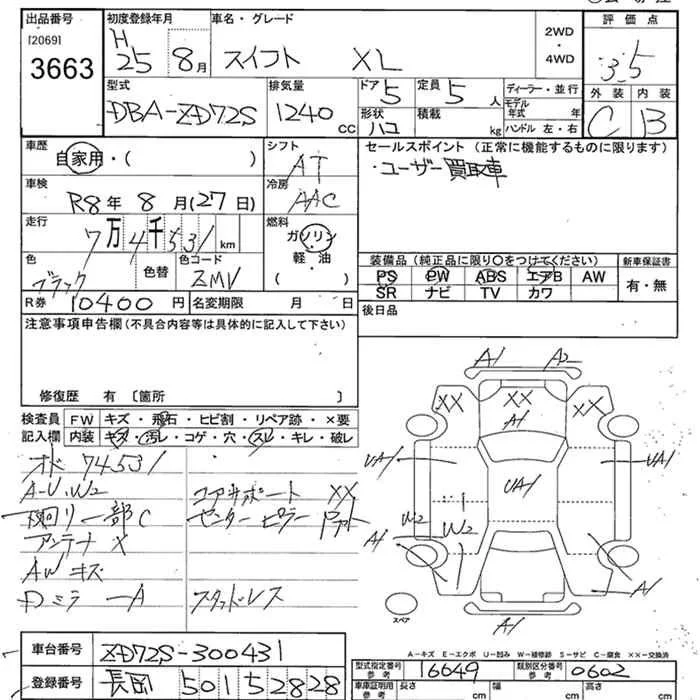 出品番号 初度登録年月 車名・グレード 評価点
[20691
3663
H 25 8月 スイフト XL 2WD・4WD 3.5
型式 排気量 ドア 5 定員 5人 ディーラー・並行 外装 内装
DBA-ZD72S 1240 CC 形状 ハコ 積載 kg モデル年式 年 ハンドル 左・右 C B
車歴 シフト セールスポイント (正常に機能するものに限ります)
自家用・( ) AT ・ユーザー買取車
車検 冷房
R8年 8月(27日) AAC
走行 燃料
7万4千531km ガソリン・軽・油
色 色替 色コード ( ) 装備品 (純正品に限り○をつけてください) 新車保証書
ブラック ZMV PS PW ABS エアB AW 有・無
SR ナビ TV カワ
R券 10400円 名変期限 月 日 後日品
注意事項申告欄 (不具合内容等は具体的に記入して下さい)
修復歴 有 [箇所 ]
検査員 FW キズ・飛石・ヒビ割・リペア跡・×要
記入欄 内装 キズ・汚レ・コゲ・穴・スレ・キレ・破レ
オド 74531
A-U.W2 コアサポート XX
下廻リ一部C センターピラー
アンテナ X
AW キズ
ミラーA スタッドレス
A1 A2
XX XX XX
A1
UA1 UA1 UA1
W2 W2
A1 A1
スペア A1
A-キズ E-エクボ U-凹み W-補修跡 S-サビ C-腐食 XX-交換済
車台番号 ZD72S-300431
型式指定番号 参考 16649 類別区分番号 参考 0602
登録番号 長岡 501 5 2828
車庫証明用 参考 長さ cm 幅 cm 高さ cm